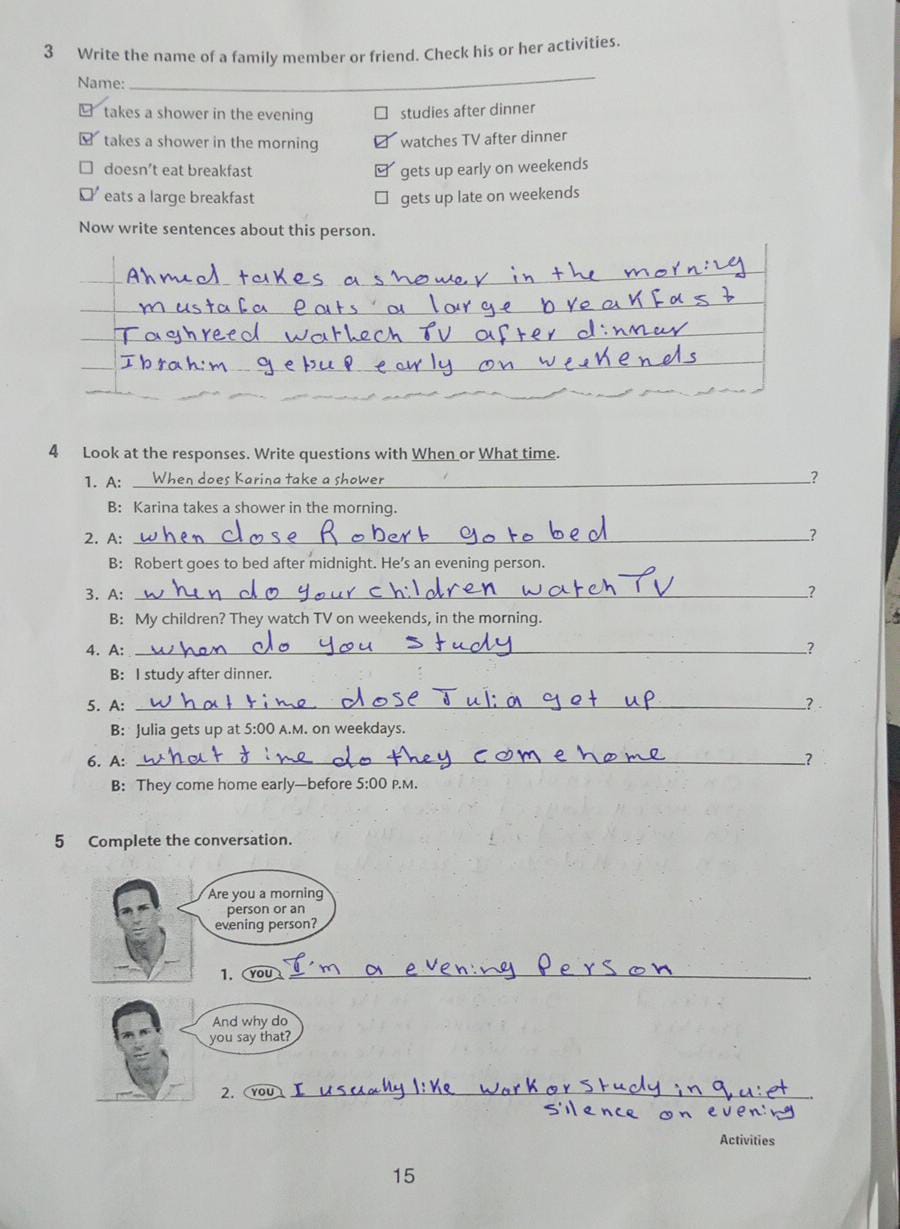 3 Write the name of a family member or friend. Check his or her activities.
Name:
takes a shower in the evening
studies after dinner
takes a shower in the morning
watches TV after dinner
doesn't eat breakfast
gets up early on weekends
eats a large breakfast
gets up late on weekends
Now write sentences about this person.
Ahmed takes a shower in the morning
mustafa eats a large breakfast
Taghreed wathech TV after dinnar
Ibrahim getup early on weekends
4 Look at the responses. Write questions with When or What time.
1. A: When does Karina take a shower ?
B: Karina takes a shower in the morning.
2. A: when dose Robert go to bed ?
B: Robert goes to bed after midnight. He's an evening person.
3. A: when do your children watch TV ?
B: My children? They watch TV on weekends, in the morning.
4. A: when do you study ?
B: I study after dinner.
5. A: what time dose Julia get up ?
B: Julia gets up at 5:00 A.M. on weekdays.
6. A: what time do they come home ?
B: They come home early—before 5:00 P.M.
5 Complete the conversation.
Are you a morning
person or an
evening person?
1. YOU I'm a evening Person .
And why do
you say that?
2. YOU I usually like work or study in quiet .
silence on evening
Activities
15